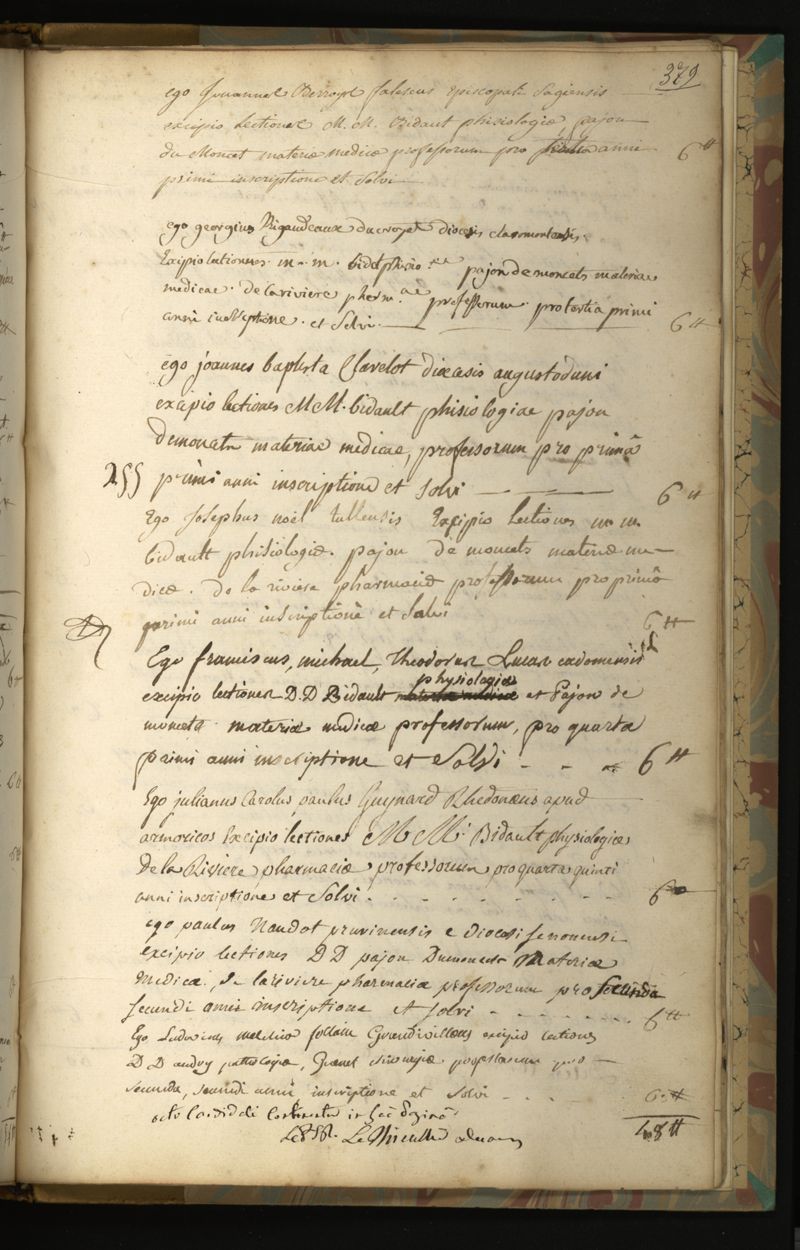 379
ego faleseus Episcopatu Sagiensis
excipio Lectiones M. M. Bidault phisiologiæ pajon
du Moncet materiæ medicæ professorum pro anni 6 ₶
primi inscriptione et Solvi
ego georgius Rigaudeaux ducrozet diocesis claromontensis
Excipio lectiones m. m. pajon de moncets materiae
medicae. De la riviere professorum. pro tertia primi
anni inscriptione. et Solvi. 6 ₶
ego joannes baptista Clavelot diœcesis augustoduni
excipio lectiones M M. bidault phisiologiae pajon
demoncets materiae medicae, professorum pro primâ
255 primi anni inscriptione et solvi 6 ₶
Ego Josephus noël tullensis Excipio Lectiones m. m.
bidault phisiologiæ. pajon de moncets materiæ me-
dicæ. De la riviere pharmaciæ professorum pro primâ
primi anni inscriptione et Solvi 6 ₶
Ego franciscus, michael, Theodorus Lucas cadomensis
physiologiæ
excipio lectiones D. D Bidault et Pajon de
moncets materiæ medicæ professorum, pro quarta
primi anni inscriptione et Solvi - - - 6 ₶
Ego julianus Carolus paulus Guynard Rhedonæus apud
armoricos Excipio lectiones M M. Bidault physiologiæ
De la Riviere pharmaciæ professorum pro quarta quinti
anni inscriptione et Solvi . . . . 6
ego paulus Naudot pruvinensis e diocesi senonensi
excipio lectiones D D pajon Dumoncets Materiæ
Medicæ. De lariviere pharmaciæ professorum pro Secunda
secundi anni inscriptione et solvi - - - - 6 ₶
Ego Ludovicus follain excipio lectiones
D D andry pathologiæ, chirurgiæ professorum pro
secunda, secundi anni inscriptione et Solvi - - - 6 ₶
octo in hac pagina
Le Thieullier decanus 48 ₶